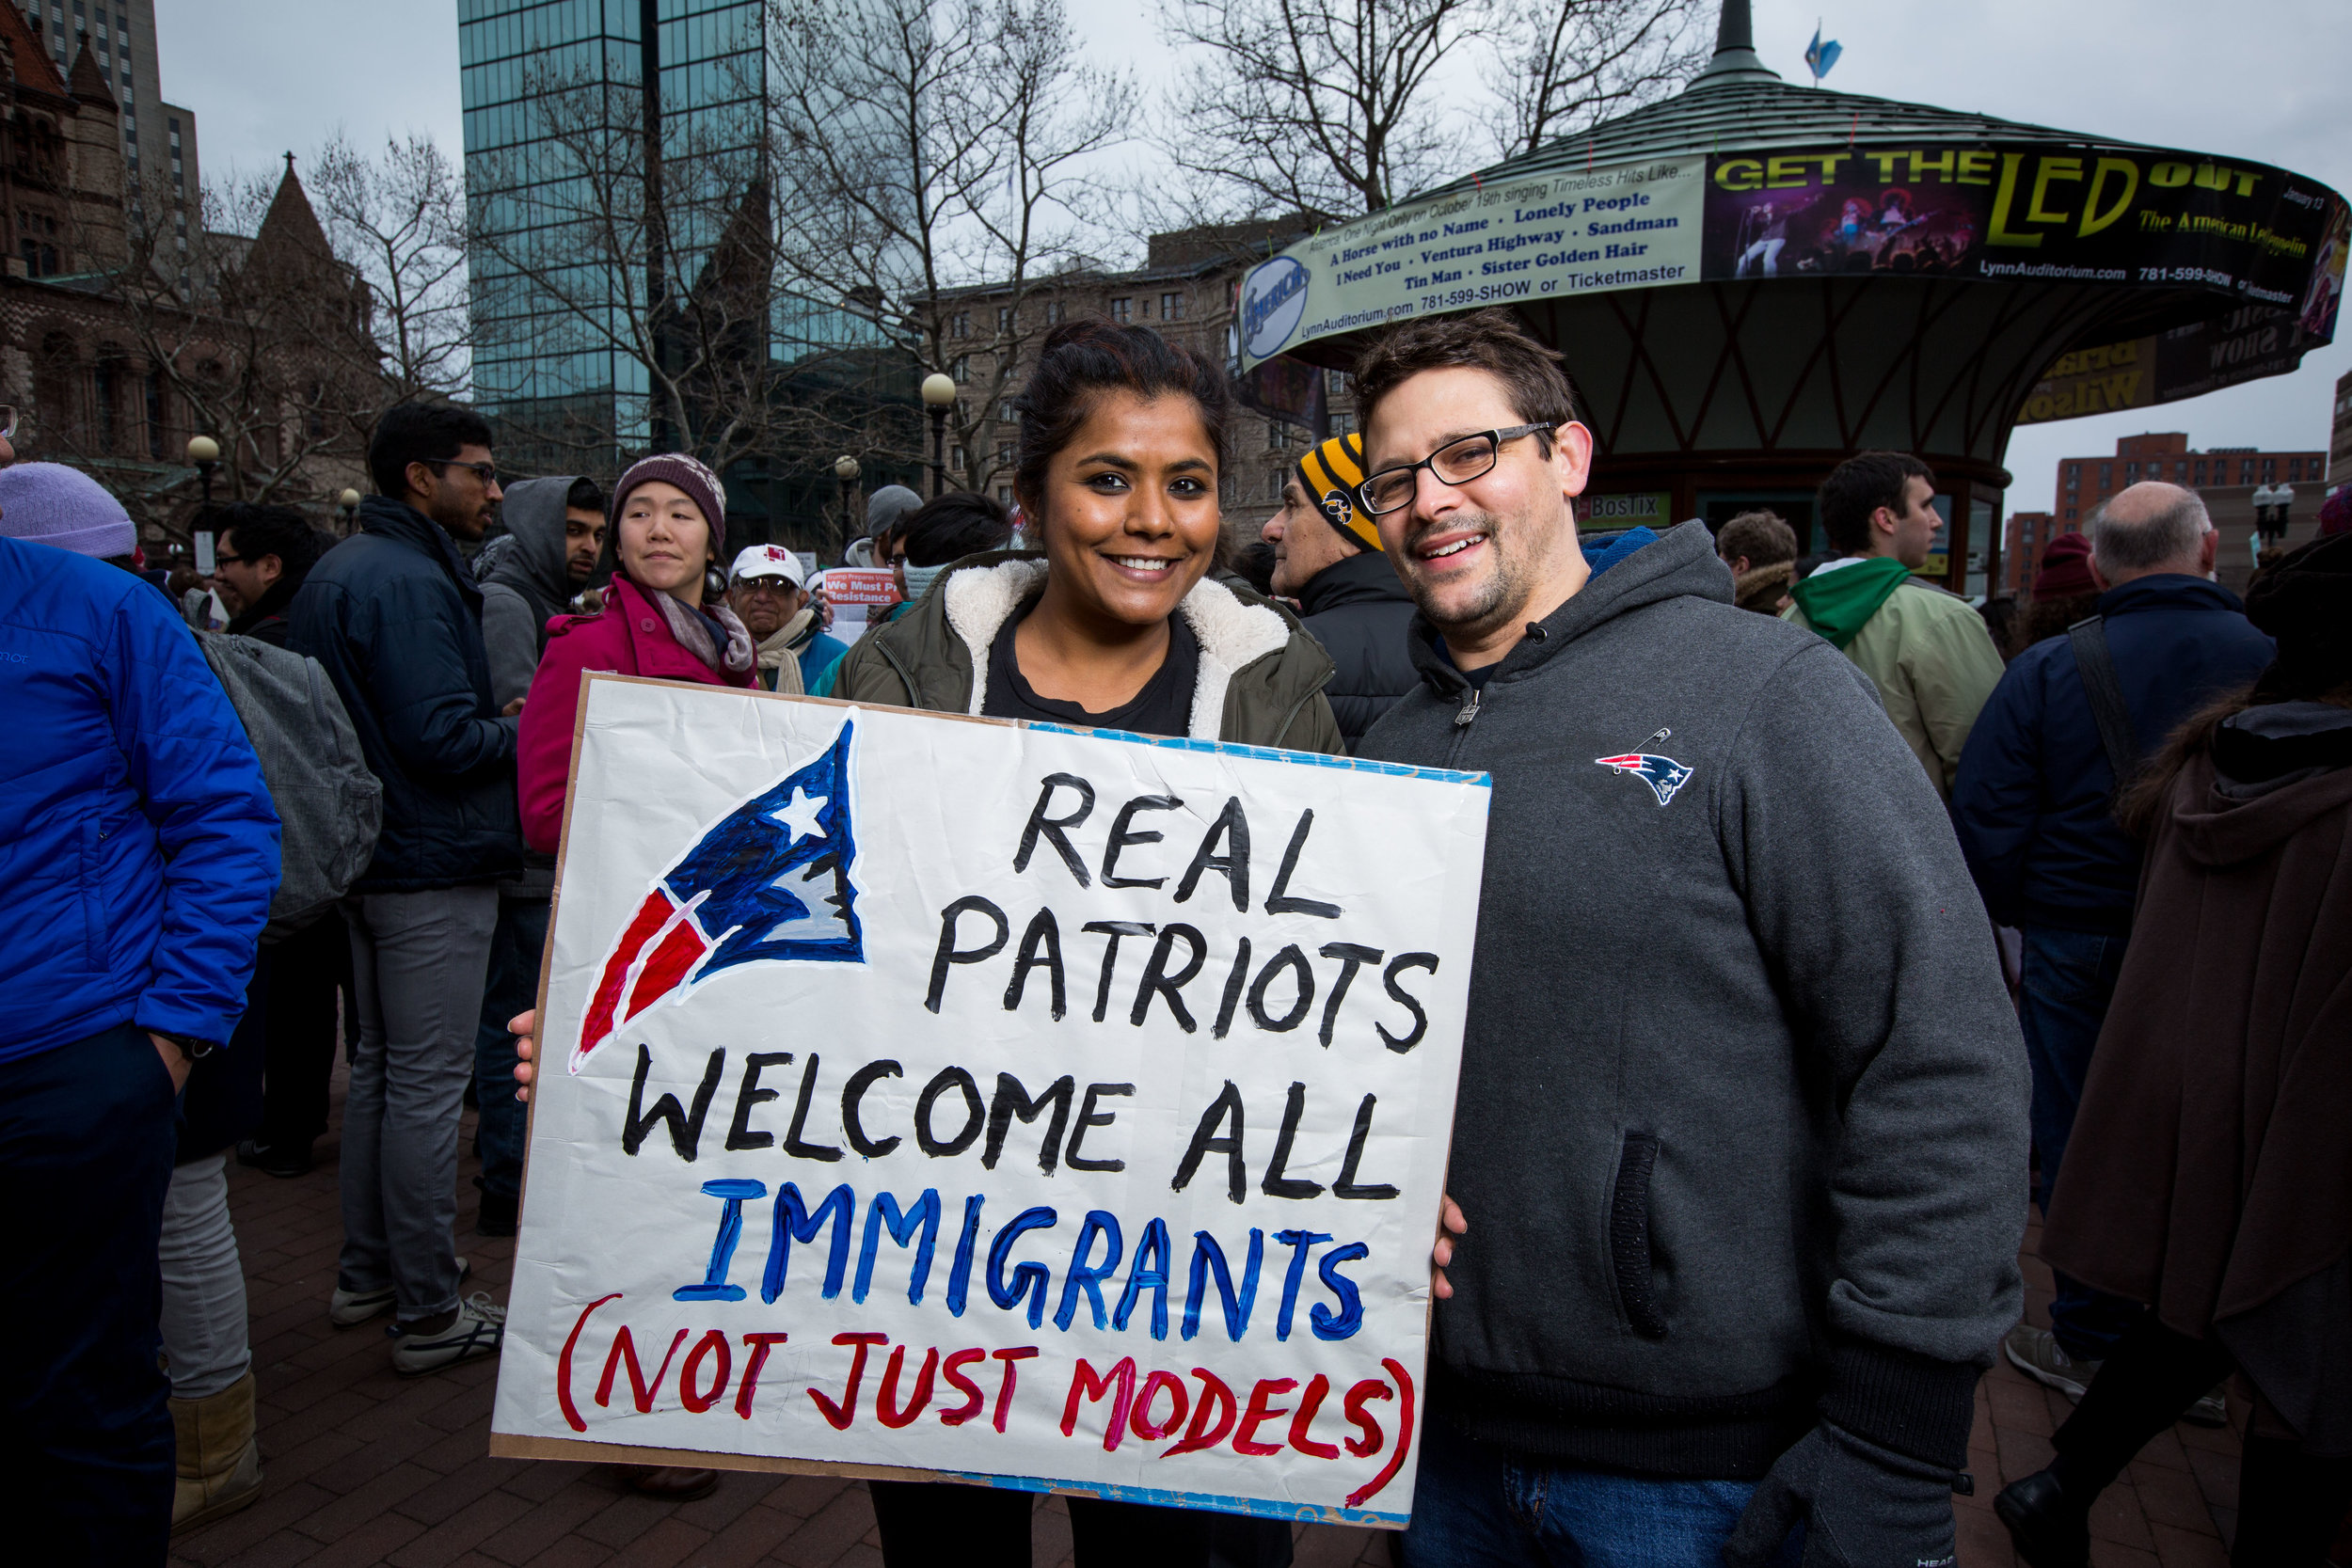 America, One Night Only on October 19th singing Timeless Hits Like...
A Horse with no Name • Lonely People
I Need You • Ventura Highway • Sandman
Tin Man • Sister Golden Hair
LynnAuditorium.com 781-599-SHOW or Ticketmaster
AMERICA
GET THE LED OUT
The American Led Zeppelin
January 13
LynnAuditorium.com 781-599-SHOW or
Brian
Wilson
SHOW
BOSTIX
Trump Prepares
We Must
Resistance
REAL
PATRIOTS
WELCOME ALL
IMMIGRANTS
(NOT JUST MODELS)
HEAD